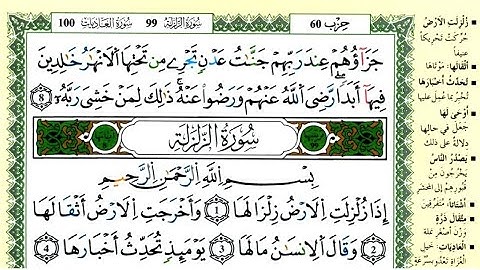 حِزْب 60
سُورَةُ الزَّلْزَلَة 99
سُورَةُ العَادِيَات 100
جَزَآؤُهُمْ عِندَ رَبِّهِمْ جَنَّٰتُ عَدْنٍ تَجْرِے مِن تَحْتِهَا اَلَانْهَٰرُ خَٰلِدِينَ
فِيهَآ أَبَداٗ رَّضِيَ اَللَّهُ عَنْهُمْ وَرَضُواْ عَنْهُ ذَٰلِكَ لِمَنْ خَشِيَ رَبَّهُۥ 8
سُورَةُ الزَّلْزَلَة
بِسْمِ اِللَّهِ اِلرَّحْمَٰنِ اِلرَّحِيمِ
إِذَا زُلْزِلَتِ اِلَارْضُ زِلْزَالَهَا 1 وَأَخْرَجَتِ اِلَارْضُ أَثْقَالَهَا
2 وَقَالَ اَلِانسَٰنُ مَالَهَا 3 يَوْمَئِذٖ تُحَدِّثُ أَخْبَارَهَا 4
زُلْزِلَتِ الْأَرْضُ
حُرِّكَتْ تَحْرِيكاً
عَنِيفاً
أَثْقَالَهَا: مَوْتَاهَا
تُحَدِّثُ أَخْبَارَهَا
تُخْبِرُ بِمَا عُمِلَ عَلَيْهَا
أَوْحَى لَهَا
جَعَلَ فِي حَالِهَا
دِلَالَةً عَلَى ذَلِكَ
يَصْدُرُ النَّاسُ
يَخْرُجُونَ مِنْ
قُبُورِهِمْ إِلَى الْمَحْشَرِ
أَشْتَاتاً: مُتَفَرِّقِينَ
مِثْقَالَ ذَرَّةٍ
وَزْنَ أَصْغَرِ نَمْلَةٍ
الْعَادِيَاتِ: خَيْلِ
الْغُزَاةِ تَعْدُو بِسُرْعَةٍ